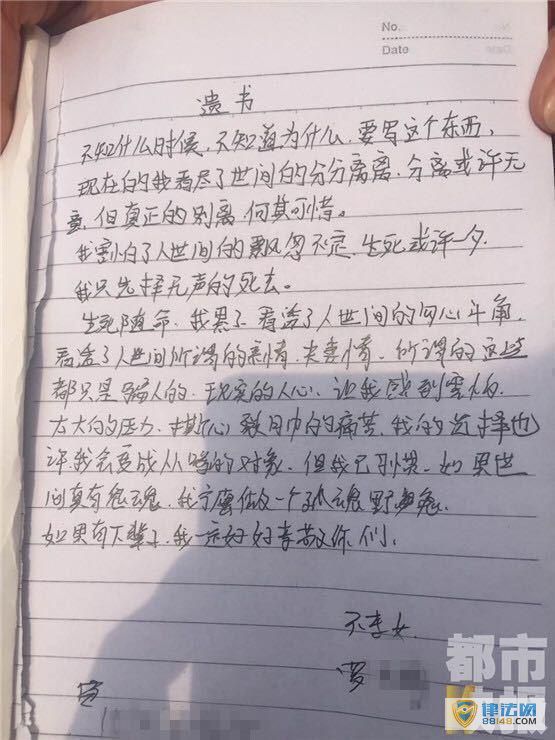 No.
Date
遗书
不知什么时候，不知道为什么，要写这个东西，
现在的我看尽了世间的分分离离，分离或许无
意，但真正的别离，何其可惜。
我害怕了人世间的飘忽不定，生死或许一夕
我只选择无声的死去。
生死随命，我累了，看透了人世间的勾心斗角，
看透了人世间所谓的亲情，夫妻情，所谓的这些
都只是骗人的，现实的人心，让我感到害怕
太大的压力，撕心裂肺的痛苦，我的选择也
许我会变成人的对象，但我已习惯，如果世
间真有鬼魂，我宁愿做一个孤魂野鬼
如果有下辈子，我一定好好孝敬你们。
不孝女
罗
都市
快报
律法网
88148.com